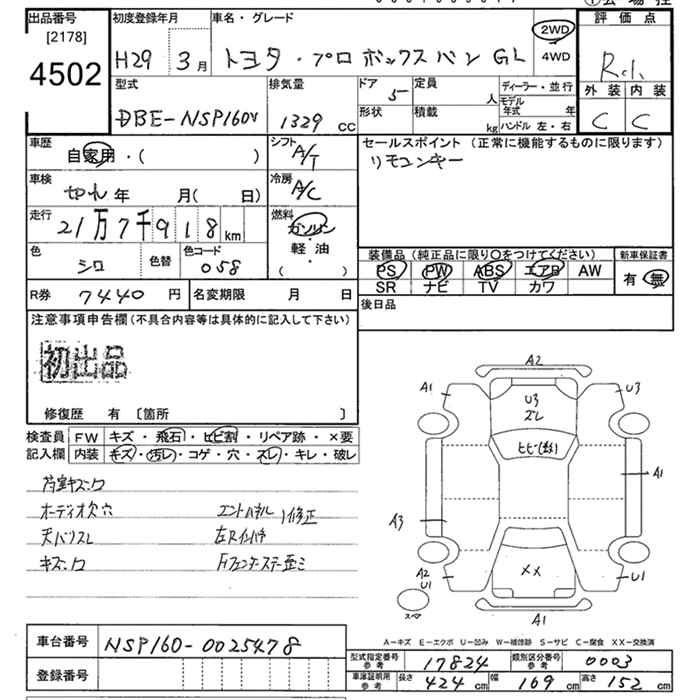 出品番号
[2178]
4502
初度登録年月
H29 3月
車名・グレード
トヨタ・プロボックスバン GL
2WD
4WD
評価点
R
外装 内装
C C
型式
DBE-NSP160V
排気量
1329 CC
ドア 5
形状
定員 人
積載 kg
ディーラー・並行
モデル年式 年
ハンドル 左・右
車歴
自家用・( )
シフト
A/T
車検
切れ 年 月( 日)
冷房
A/C
走行
21万7千918km
燃料
ガソリン
・
軽・油
( )
色
シロ
色替
色コード
058
セールスポイント(正常に機能するものに限ります)
リモコンキー
装備品(純正品に限り〇をつけてください)
PS PW ABS エアB AW
SR ナビ TV カワ
新車保証書
有・無
R券 7440円
名変期限 月 日
後日品
注意事項申告欄(不具合内容等は具体的に記入して下さい)
初出品
修復歴 有〔箇所 〕
検査員記入欄
FW キズ・飛石・ヒビ割・リペア跡・×要
内装 キズ・汚レ・コゲ・穴・スレ・キレ・破レ
オーディオ欠穴
修正
A2
A1
U3
U3
A1
A3
A2
U1
××
U1
A1
スマ
A-キズ E-エクボ U-凹み W-補修跡 S-サビ C-腐食 XX-交換済
車台番号 NSP160-0025478
登録番号
型式指定番号 参考 17824
類別区分番号 参考 0003
車庫証明用 参考 長さ 424cm 幅 169cm 高さ 152cm